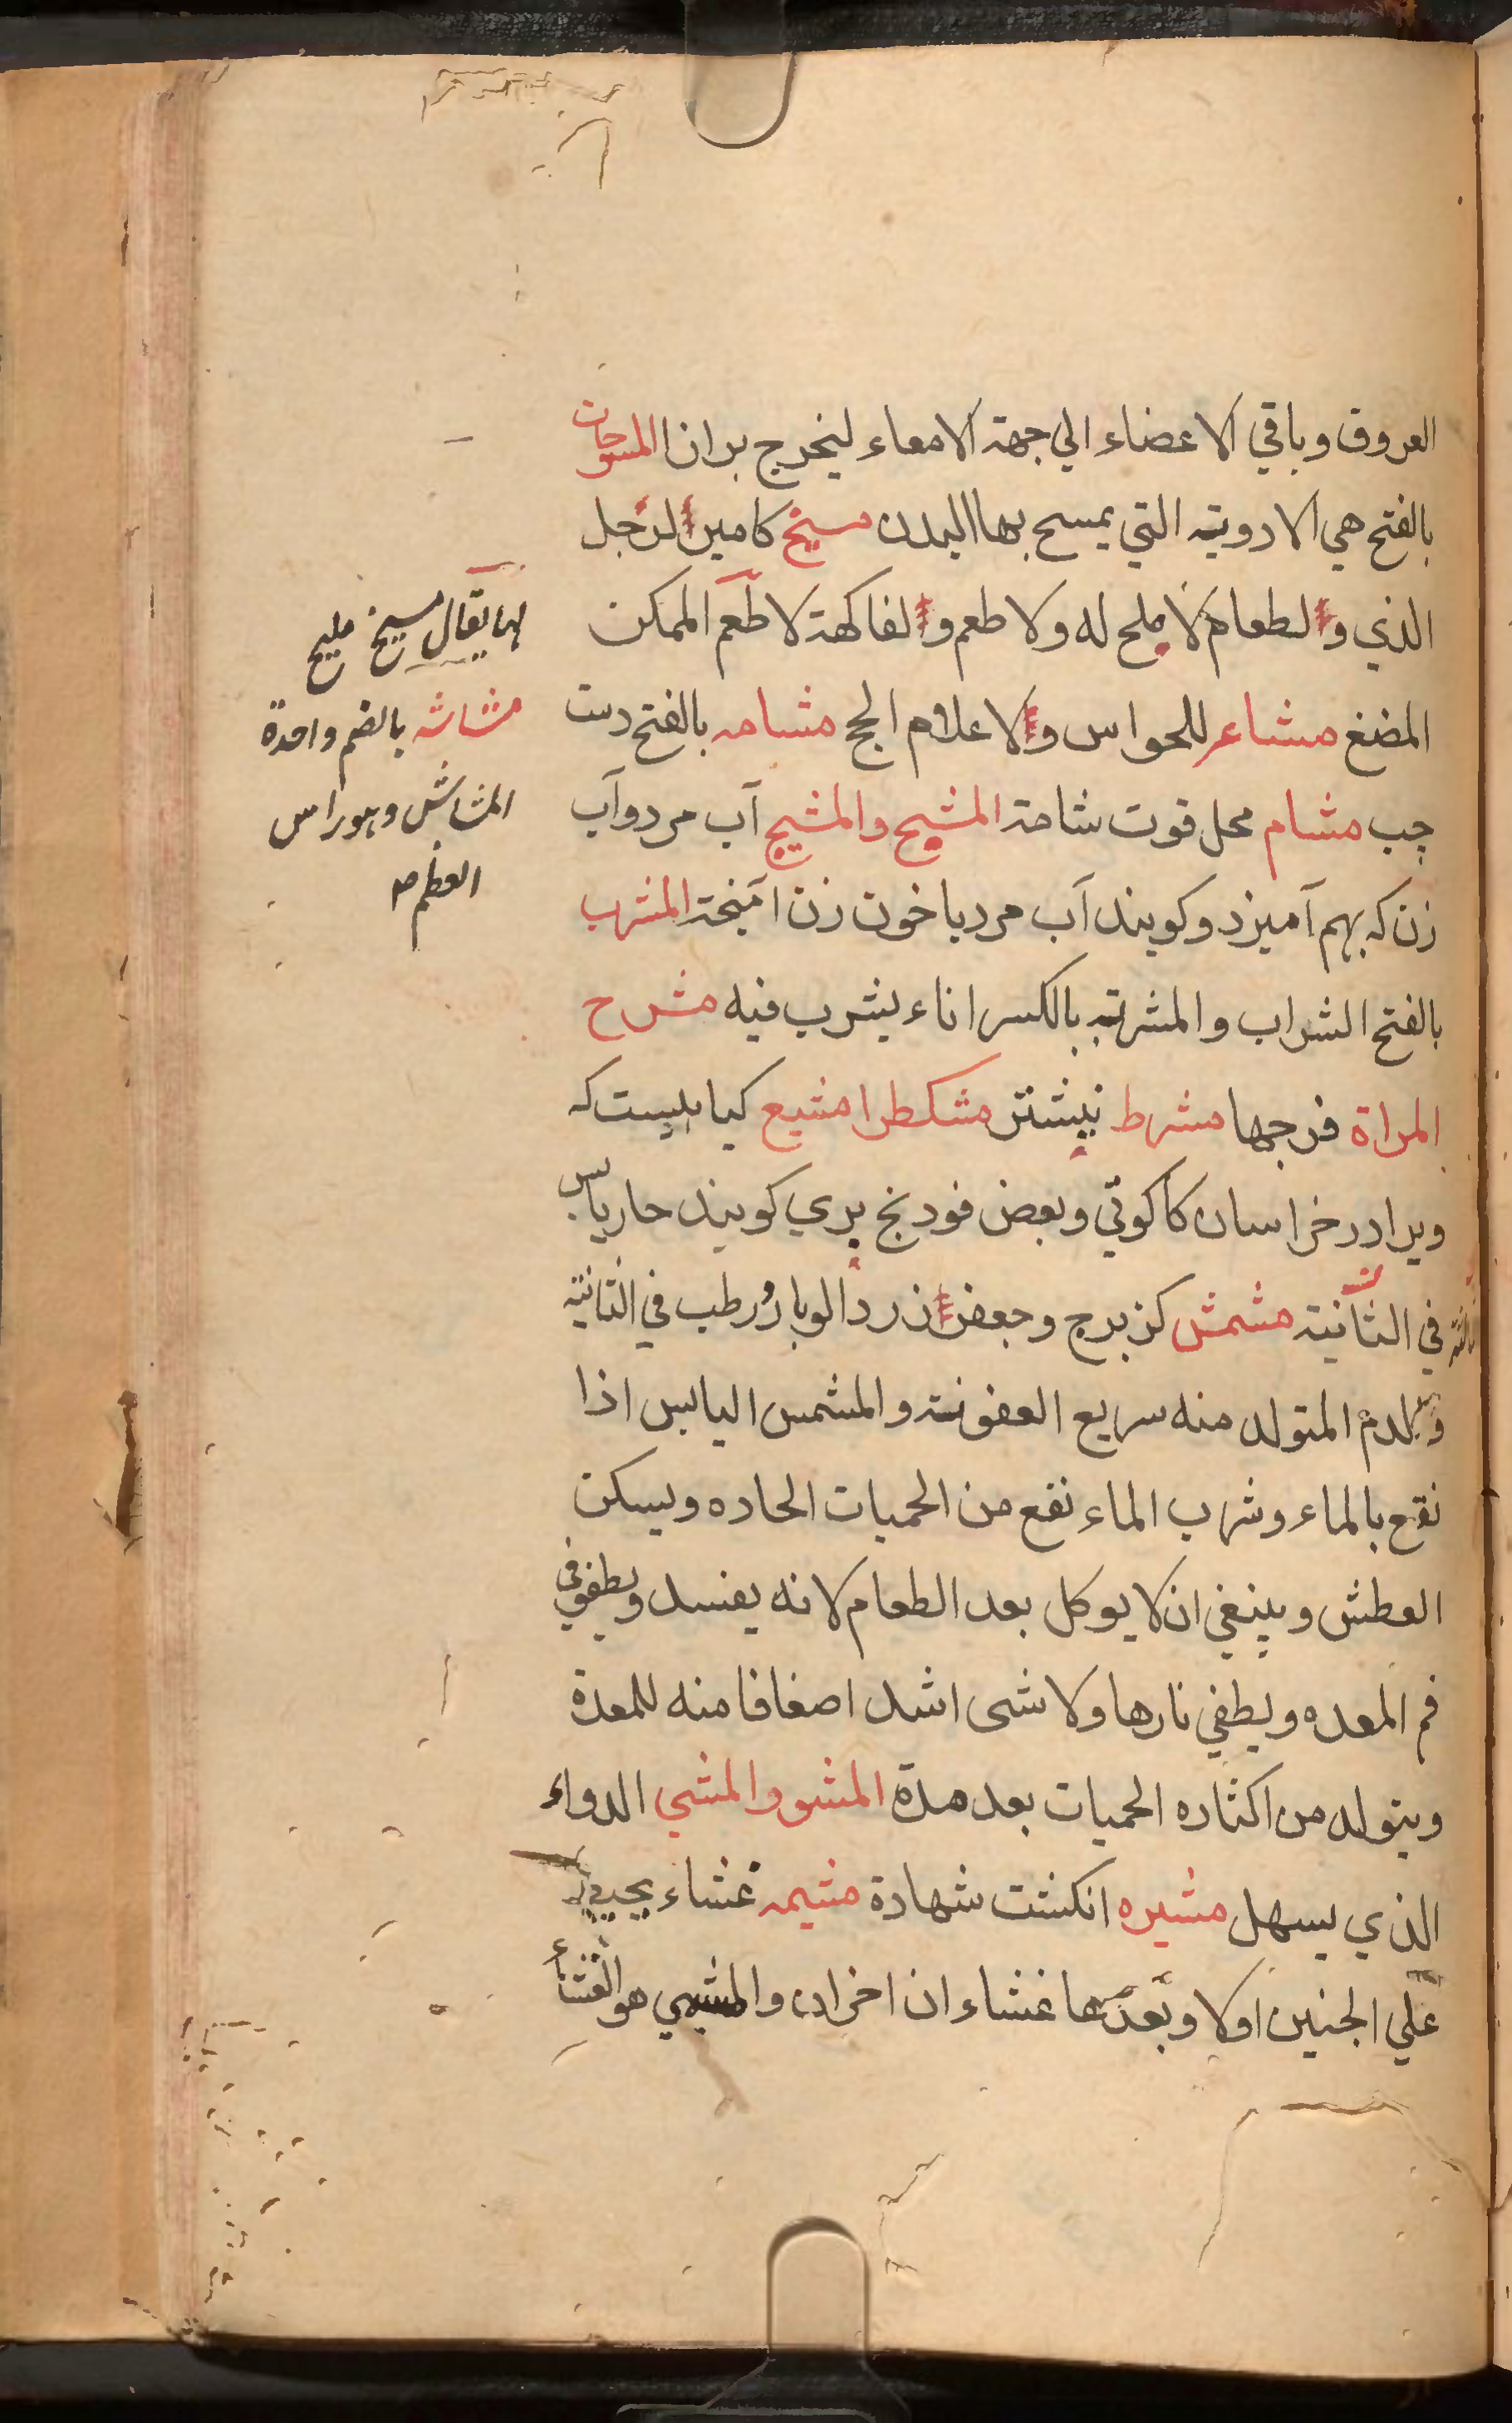 العروق وباقي الاعضاء الي جهة الامعاء ليخرج بران المسوحات
بالفتح هي الادوية التي يمسح بها البدن مسيخ كامير الرجل
الذي والطعام لا ملح له ولا طعم والفاكهة لا طعم الممكن
المضغ مشاعر للحواس ولاعلام الحج مشامه بالفتح دست
چپ مشام محل قوت شامة المشيح والمشيج آب مرد وآب
زن كه بهم آميزد وكويند آب مرد يا خون زن آميخته المشرب
بالفتح الشراب والمشربة بالكسر اناء يشرب فيه مشرح
المراة فرجها مشرط نيشتر مشكطرامشيع كياهيست كه
ويرا در خراسان كاكوتي وبعض فودنج بري كويند حار يابس
في الثانية مشمش كزبرج وجعفر زردالو بارد رطب في الثانية
والدم المتولد منه سريع العفونة والمشمس اليابس اذا
نقع بالماء وشرب الماء نفع من الحميات الحاده ويسكن
العطش وينبغي ان لا يوكل بعد الطعام لانه يفسد ويطفو في
فم المعده ويطفي نارها ولا شى اشد اضعافا منه للمعدة
ويتولد من اكثاره الحميات بعد مدة المشو والمشي الدواء
الذي يسهل مشيره انكشت شهادة مشيمه غشاء يحيي
علي الجنين اولا وبعدها غشاء ان اخران والمشيمي هو الغشاء
يقال مسيخ مليح
مشاشه بالضم واحدة
المشاش وهو راس
العظم